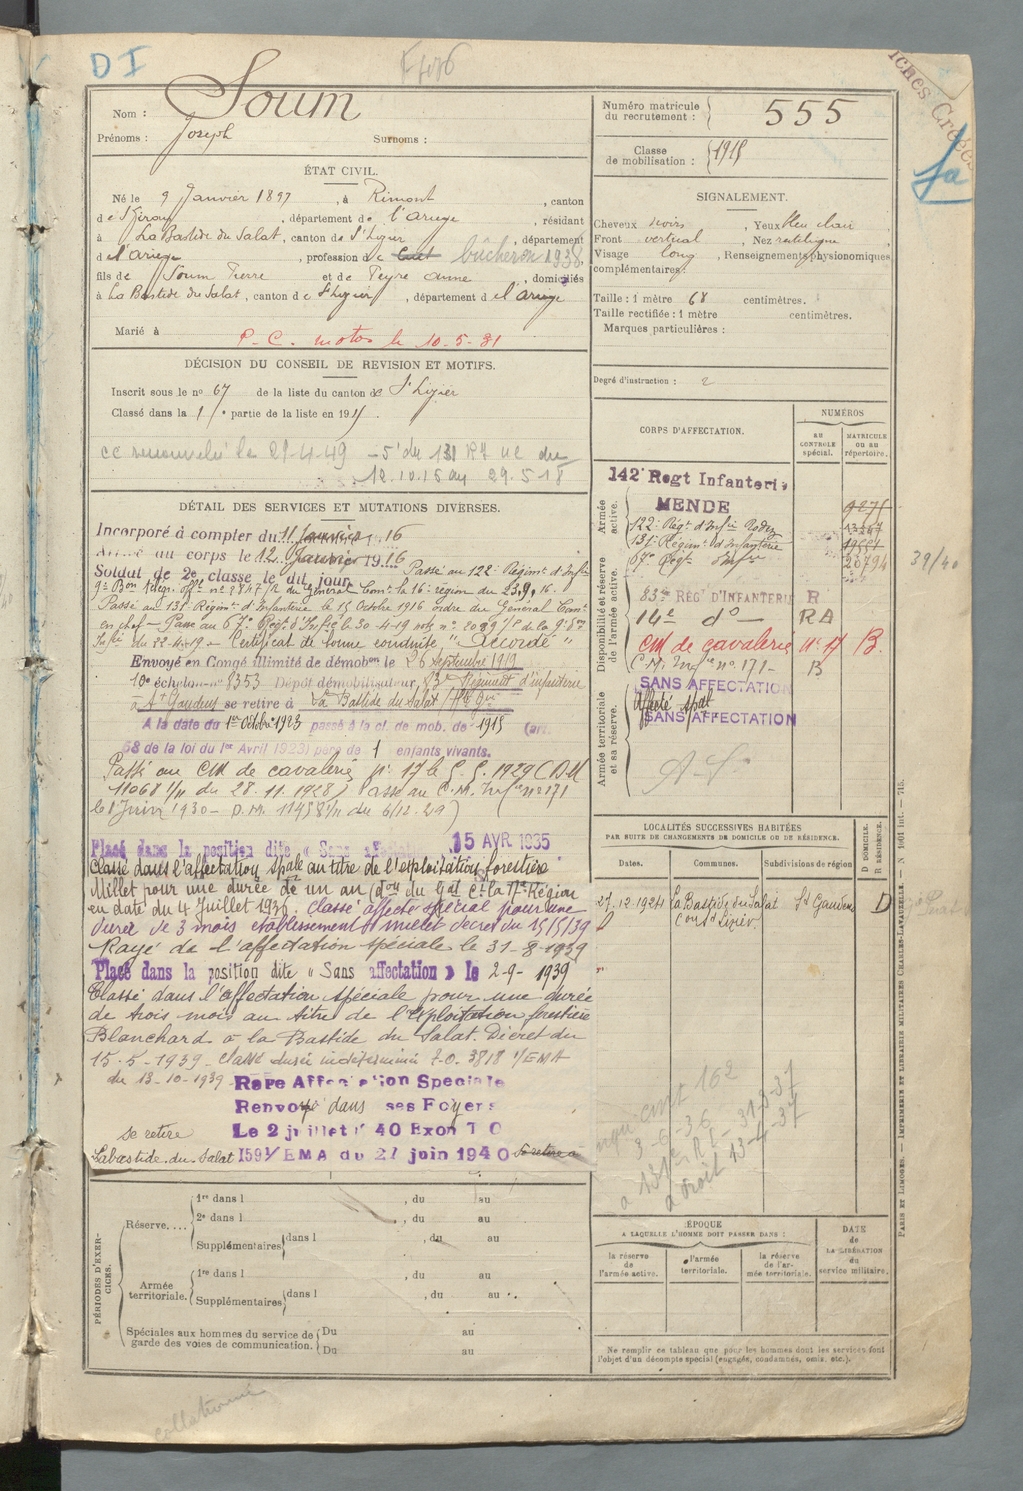 D I
Nom : Soum
Prénoms : Joseph Surnoms :
Numéro matricule du recrutement : 555
Classe de mobilisation : 1915
ÉTAT CIVIL.
Né le 9 Janvier 1897, à Rimont, canton
de St Girons, département de l'Ariège, résidant
à La Bastide du Salat, canton de St Lizier, département
d e l'Ariège, profession de bûcheron 1938,
fils de Soum Pierre et de Peyre Anne, domiciliés
à La Bastide du Salat, canton de St Lizier, département d e l'Ariège
Marié à
P. C. motos le 10-5-31
SIGNALEMENT.
Cheveux noirs, Yeux bleu clair
Front vertical, Nez rectiligne
Visage long, Renseignements physionomiques
complémentaires :
Taille : 1 mètre 68 centimètres.
Taille rectifiée : 1 mètre centimètres.
Marques particulières :
Degré d'instruction : 2
DÉCISION DU CONSEIL DE REVISION ET MOTIFS.
Inscrit sous le no 67 de la liste du canton de St Lizier
Classé dans la 1re partie de la liste en 191
cc renouvelée le 21-4-49 - 5e du 131 RI UC du
12.10.16 au 29.5.18
DÉTAIL DES SERVICES ET MUTATIONS DIVERSES.
Incorporé à compter du 11 Janvier 16
Arrivé au corps le 12 Janvier 1916
Soldat de 2e classe le dit jour Passé au 122e Régiment d'Infie
du Général Comt la 16e région du 23.9.16.
Passé au 131e Régiment d'Infanterie le 15 Octobre 1916 ordre du Général Comt
en chef - Passé au 67e Regt d'Infie le 30-4-19 note no
du 22-4-19 - Certificat de bonne conduite "Accordé"
Envoyé en Congé illimité de démobon le 26 septembre 1919
10e échelon no 8353 Dépôt démobilisateur 83e Régiment d'infanterie
à St Gaudens se retire à La Bastide du Salat
A la date du 1er Octobre 1923 passé à la cl. de mob. de 1915 (art.
58 de la loi du 1er Avril 1923) père de 1 enfants vivants.
Passé au CM de cavalerie no 17 le
11068 1/11 du 28.11.1928) Passé au C.M. Infie no 171
le 1 Juin 1930 - D.M. 11458 1/11 du 6/12.29)
Placé dans la position dite « Sans affectation 15 AVR 1935
Classé dans l'affectation spale au titre de l'exploitation forestière
Millet pour une durée de un an (don du Gal Ct la 17e Région
en date du 4 Juillet 1936. Classé affecté spécial pour une
durée de 3 mois établissement Millet décret du 15/5/39
Rayé de l'affectation spéciale le 31-8-1939
Placé dans la position dite « Sans affectation » le 2-9-1939
Classé dans l'affectation spéciale pour une durée
de trois mois au titre de l'exploitation forestière
Blanchard à la Bastide du Salat. Décret du
15-5-1939 classé durée indéterminée I.O. 3818 1/EMA
du 13-10-1939 Raye Affectation Speciale
Renvoyé dans ses Foyers
Le 2 juillet 1940 Exon I O
se retire
Labastide-du-Salat 159 1/EMA du 27 juin 1940 Se retire à
CORPS D'AFFECTATION.
NUMÉROS
AU CONTROLE spécial.
MATRICULE OU AU répertoire.
Armée active.
142e Regt Infanterie
MENDE
122e Régt d'Infie Rodez
131e Régiment d'Infanterie
67e Regt d'Infie 20794
Disponibilité et réserve de l'armée active.
83me RÉGt D'INFANTERIE R
14e do RA
CM de cavalerie no 17 B.
C.M. Infie no 171 - B
SANS AFFECTATION
Armée territoriale et sa réserve.
Affecté spal
SANS AFFECTATION
39/40
LOCALITÉS SUCCESSIVES HABITÉES
PAR SUITE DE CHANGEMENTS DE DOMICILE OU DE RÉSIDENCE.
Dates. Communes. Subdivisions de région
D DOMICILE. R RÉSIDENCE.
27.12.1924 La Bastide du Salat St Gaudens D
Con St Lizier
3-6-36
PÉRIODES D'EXERCICES.
Réserve.... 1re dans l , du au
2e dans l , du au
Supplémentaires dans l , du au
Armée territoriale. 1re dans l , du au
Supplémentaires dans l , du au
Spéciales aux hommes du service de garde des voies de communication. Du au
Du au
ÉPOQUE
A LAQUELLE L'HOMME DOIT PASSER DANS :
la réserve de l'armée active.
l'armée territoriale.
la réserve de l'armée territoriale.
DATE de LA LIBÉRATION du service militaire.
Ne remplir ce tableau que pour les hommes dont les services font
l'objet d'un décompte spécial (engagés, condamnés, omis, etc.).
PARIS ET LIMOGES. — IMPRIMERIE ET LIBRAIRIE MILITAIRES CHARLES-LAVAUZELLE. — N 1001 Int. — 715.
collationné